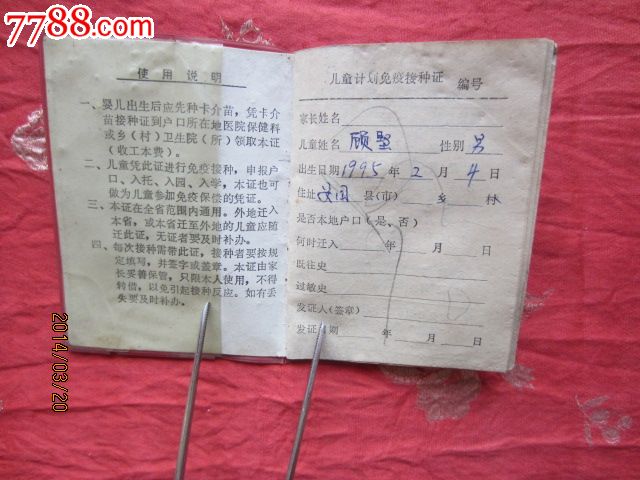 7788.com
使用说明
一、婴儿出生后应先种卡介苗，凭卡介
苗接种证到户口所在地医院保健科
或乡（村）卫生院（所）领取本证
（收工本费）。
二、儿童凭此证进行免疫接种，申报户
口、入托、入园、入学，本证也可
做为儿童参加免疫保偿的凭证。
三、本证在全省范围内通用。外地迁入
本省，或本省迁至外地的儿童应随
迁此证，无证者要及时补办。
四、每次接种需带此证，接种者要按规
定填写，并签字或盖章。本证由家
长妥善保管，只限本人使用，不得
转借，以免引起接种反应。如有丢
失要及时补办。
儿童计划免疫接种证 编号
家长姓名
儿童姓名 顾坚 性别 男
出生日期 1995 年 2 月 4 日
住址 县(市) 乡 村
是否本地户口（是、否）
何时迁入 年 月 日
既往史
过敏史
发证人(签章)
发证日期 年 月 日
2014/03/20